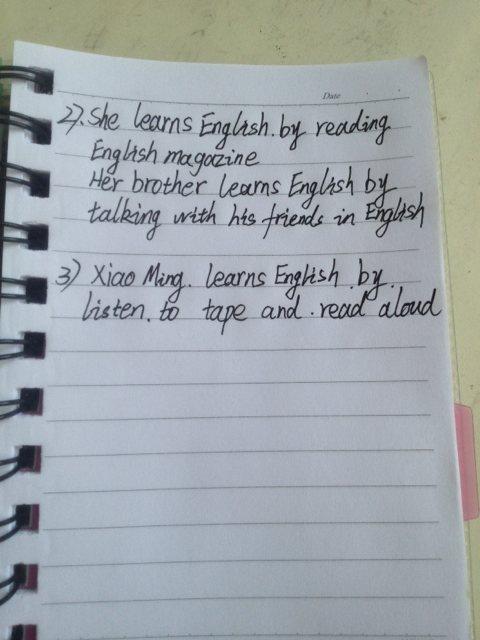 Date
2). She learns English. by reading
English magazine
Her brother learns English by
talking with his friends in English
3) Xiao Ming. learns English. by.
listen. to tape and. read aloud